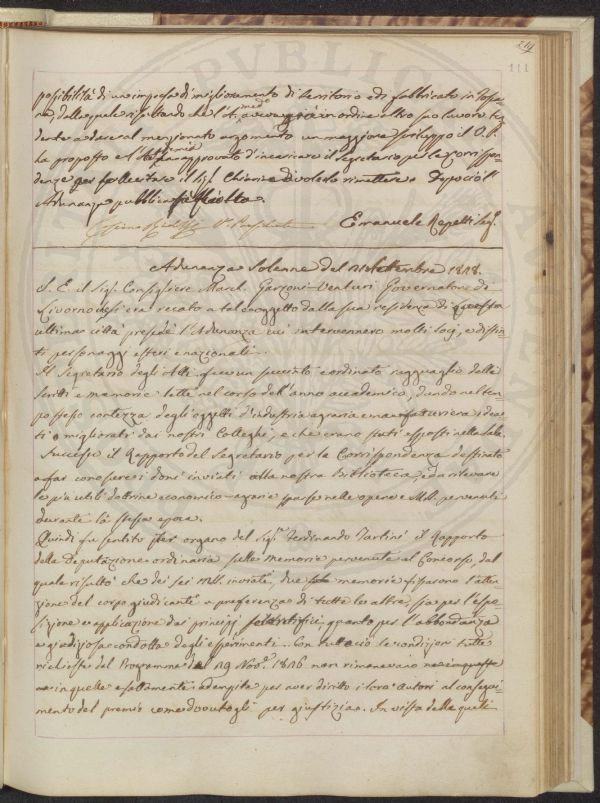 219
111
possibilità di una impresa di miglioramento di territorio e di fabbricato in Tosca=
na, dalla quale risultando che l'A. med.o aveva già in ordine altro suo lavoro ten
dente a dare al menzionato argomento un maggiore sviluppo il
ha proposto e l' approvato d'incaricare il Segretario per le Corrispon
denze per sollecitare il Sig. a volerlo rimettere. Dopo ciò l'
Adunanza pubblica si è sciolta.
Emanuele Repetti Seg.
Adunanza Solenne del Settembre 1818.
S. E. il Sig. Consigliere March. Garzoni-Venturi Governatore di
Livorno che si era recato a tal'oggetto dalla sua residenza di questa
ultima città presedè l'Adunanza cui intervennero molti Socj, e distin
ti personaggi esteri e nazionali.
Il Segretario degli Atti fece un succinto e ordinato ragguaglio delle
scritti e memorie lette nel corso dell'anno accademico, dando nel tem=
po stesso contezza degli oggetti d'industria agraria e manifatturiera idea
ti o migliorati dai nostri Colleghi, e che erano stati esposti nelle Sale.
Successe il Rapporto del Segretario per le Corrispondenze destinato
a far conoscere i doni inviati alla nostra Biblioteca, ed a rilevare
le più utili dottrine economico-agrarie sparse nelle opere e MSS. pervenuti
durante la stessa epoca.
Quindi fu sentito per organo del Sig.re Ferdinando Tartini il Rapporto
della Deputazione ordinaria sulle memorie pervenute al Concorso, dal
quale risultò che dei sei MSS. inviati, due memorie fissarono l'atten
zione del corpo giudicante a preferenza di tutte le altre, sia per l'espo=
sizione e applicazione dei principj scientifici, quanto per l'abbondanza
e giudiziosa condotta degli esperimenti. Con tutto ciò le condizioni tutte
richieste del Programma del 19 Nov.e 1816 non rimanevano
in quelle esattamente adempite per aver diritto i loro autori al consegui=
mento del premio come dovutogli per giustizia. In vista delle quali